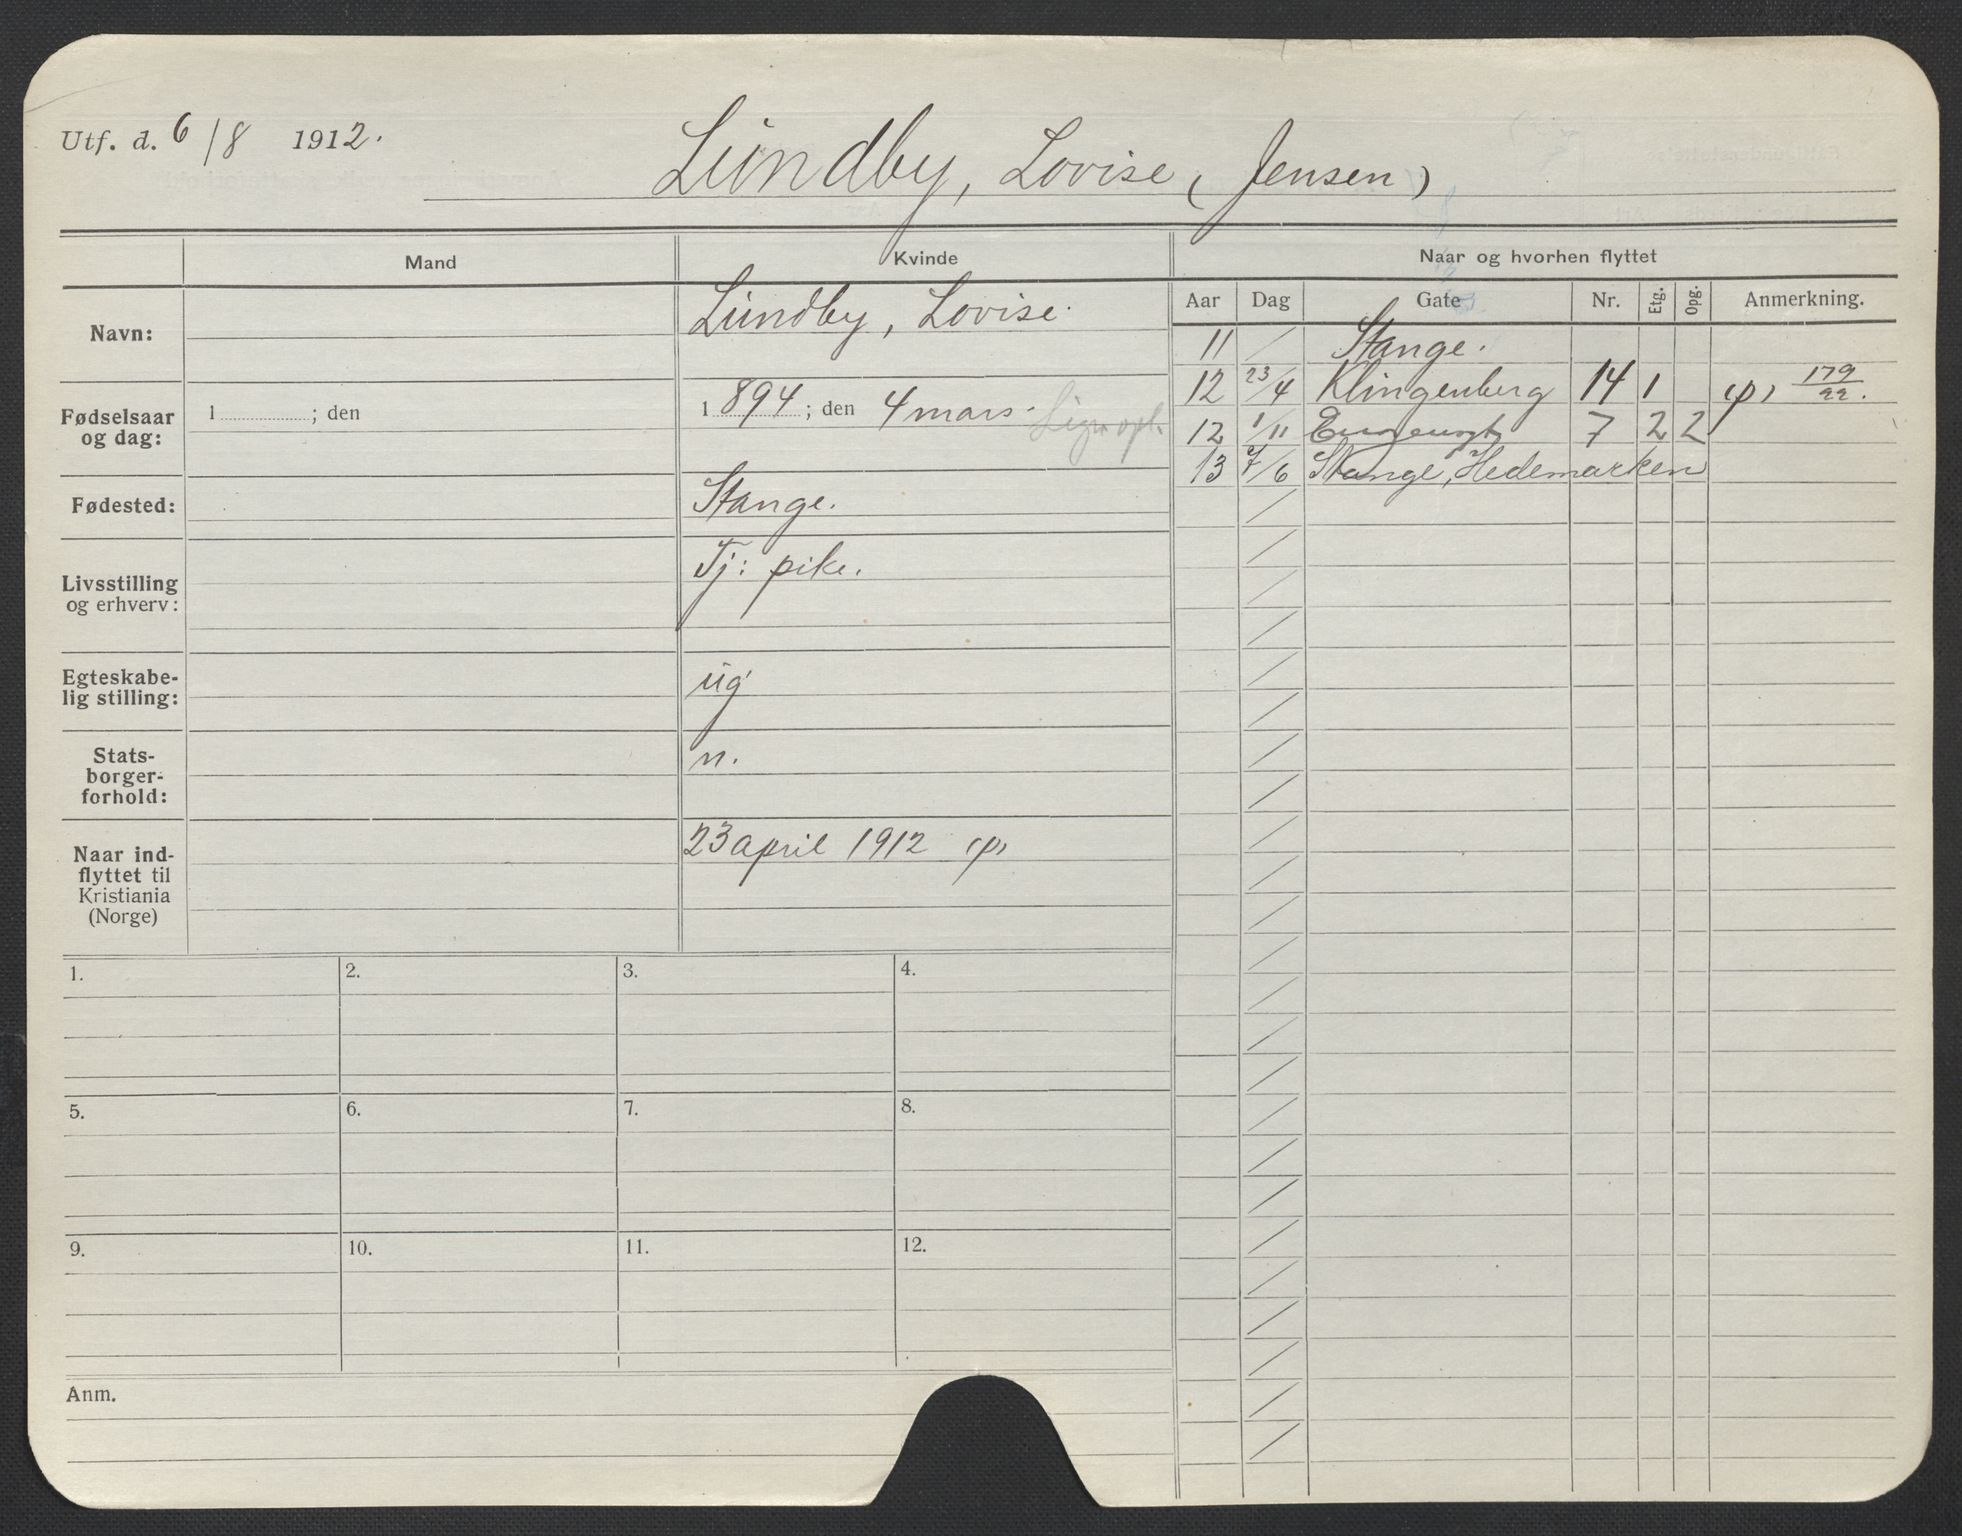 Utf. d. 6/8 1912.
Lundby, Lovise (Jensen)
Mand
Kvinde
Naar og hvorhen flyttet
Navn:
Lundby, Lovise.
Fødselsaar og dag:
1 ; den
1 894 ; den 4 mars.
Fødested:
Stange.
Livsstilling og erhverv:
Tj: pike.
Egteskabe-
lig stilling:
ug
Stats-
borger-
forhold:
n.
Naar ind-
flyttet til
Kristiania
(Norge)
23 april 1912 (p)
Aar Dag Gate Nr. Etg. Opg. Anmerkning.
11 / Stange.
12 23/4 Klingenberg 14 1 (p) 179/22.
12 1/11 7 2 2
13 7/6 Stange, Hedemarken
1. 2. 3. 4.
5. 6. 7. 8.
9. 10. 11. 12.
Anm.